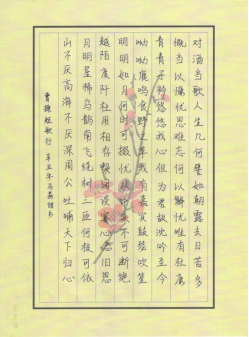 对酒当歌人生几何譬如朝露去日苦多
慨当以慷忧思难忘何以解忧唯有杜康
青青子衿悠悠我心但为君故沉吟至今
呦呦鹿鸣食野之苹我有嘉宾鼓瑟吹笙
明明如月何时可掇忧从中来不可断绝
越陌度阡枉用相存契阔谈宴心念旧恩
月明星稀乌鹊南飞绕树三匝何枝可依
山不厌高海不厌深周公吐哺天下归心
曹操短歌行 辛丑年